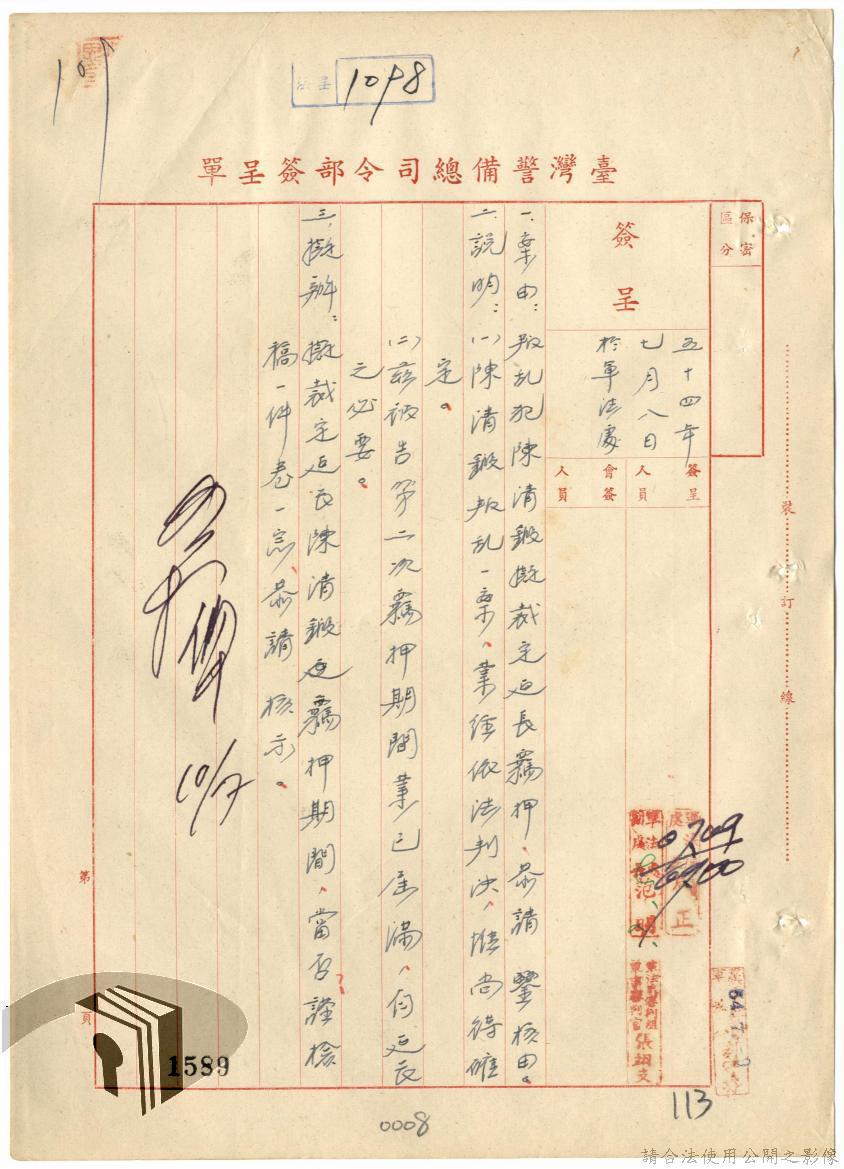 1098
臺灣警備總司令部簽呈單
保密
區分
簽呈
五十四年
七月八日
於軍法處
簽呈
人員
會簽
人員
一、案由：叛乱犯陳清鍛擬裁定延長羈押、恭請 鑒核由。
二、說明：㈠陳清鍛叛乱一案、業經依法判決，惟尚待確
定。
㈡茲被告第二次羈押期間業已屆滿，有延長
之必要。
三、擬辦：擬裁定延長陳清鍛延羈押期間、當否謹檢
稿一件卷一宗、恭請 核示。
10/7
0709
0900
裝
訂
線
第
頁
1589
113
0008
請合法使用公開之影像